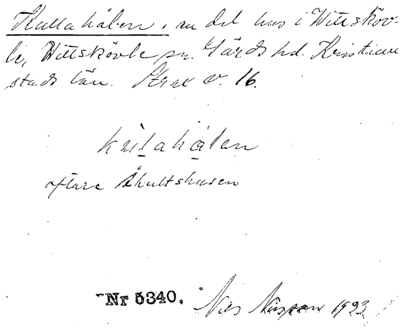 Kullahålen, en del hus i Wittsköv-
le, Wittskövle sn. Gärds hd. Kristian
stads län. Strax v. 16.
kulahålen
oftare Åhultshusen
Nr 5340. Nils 1923